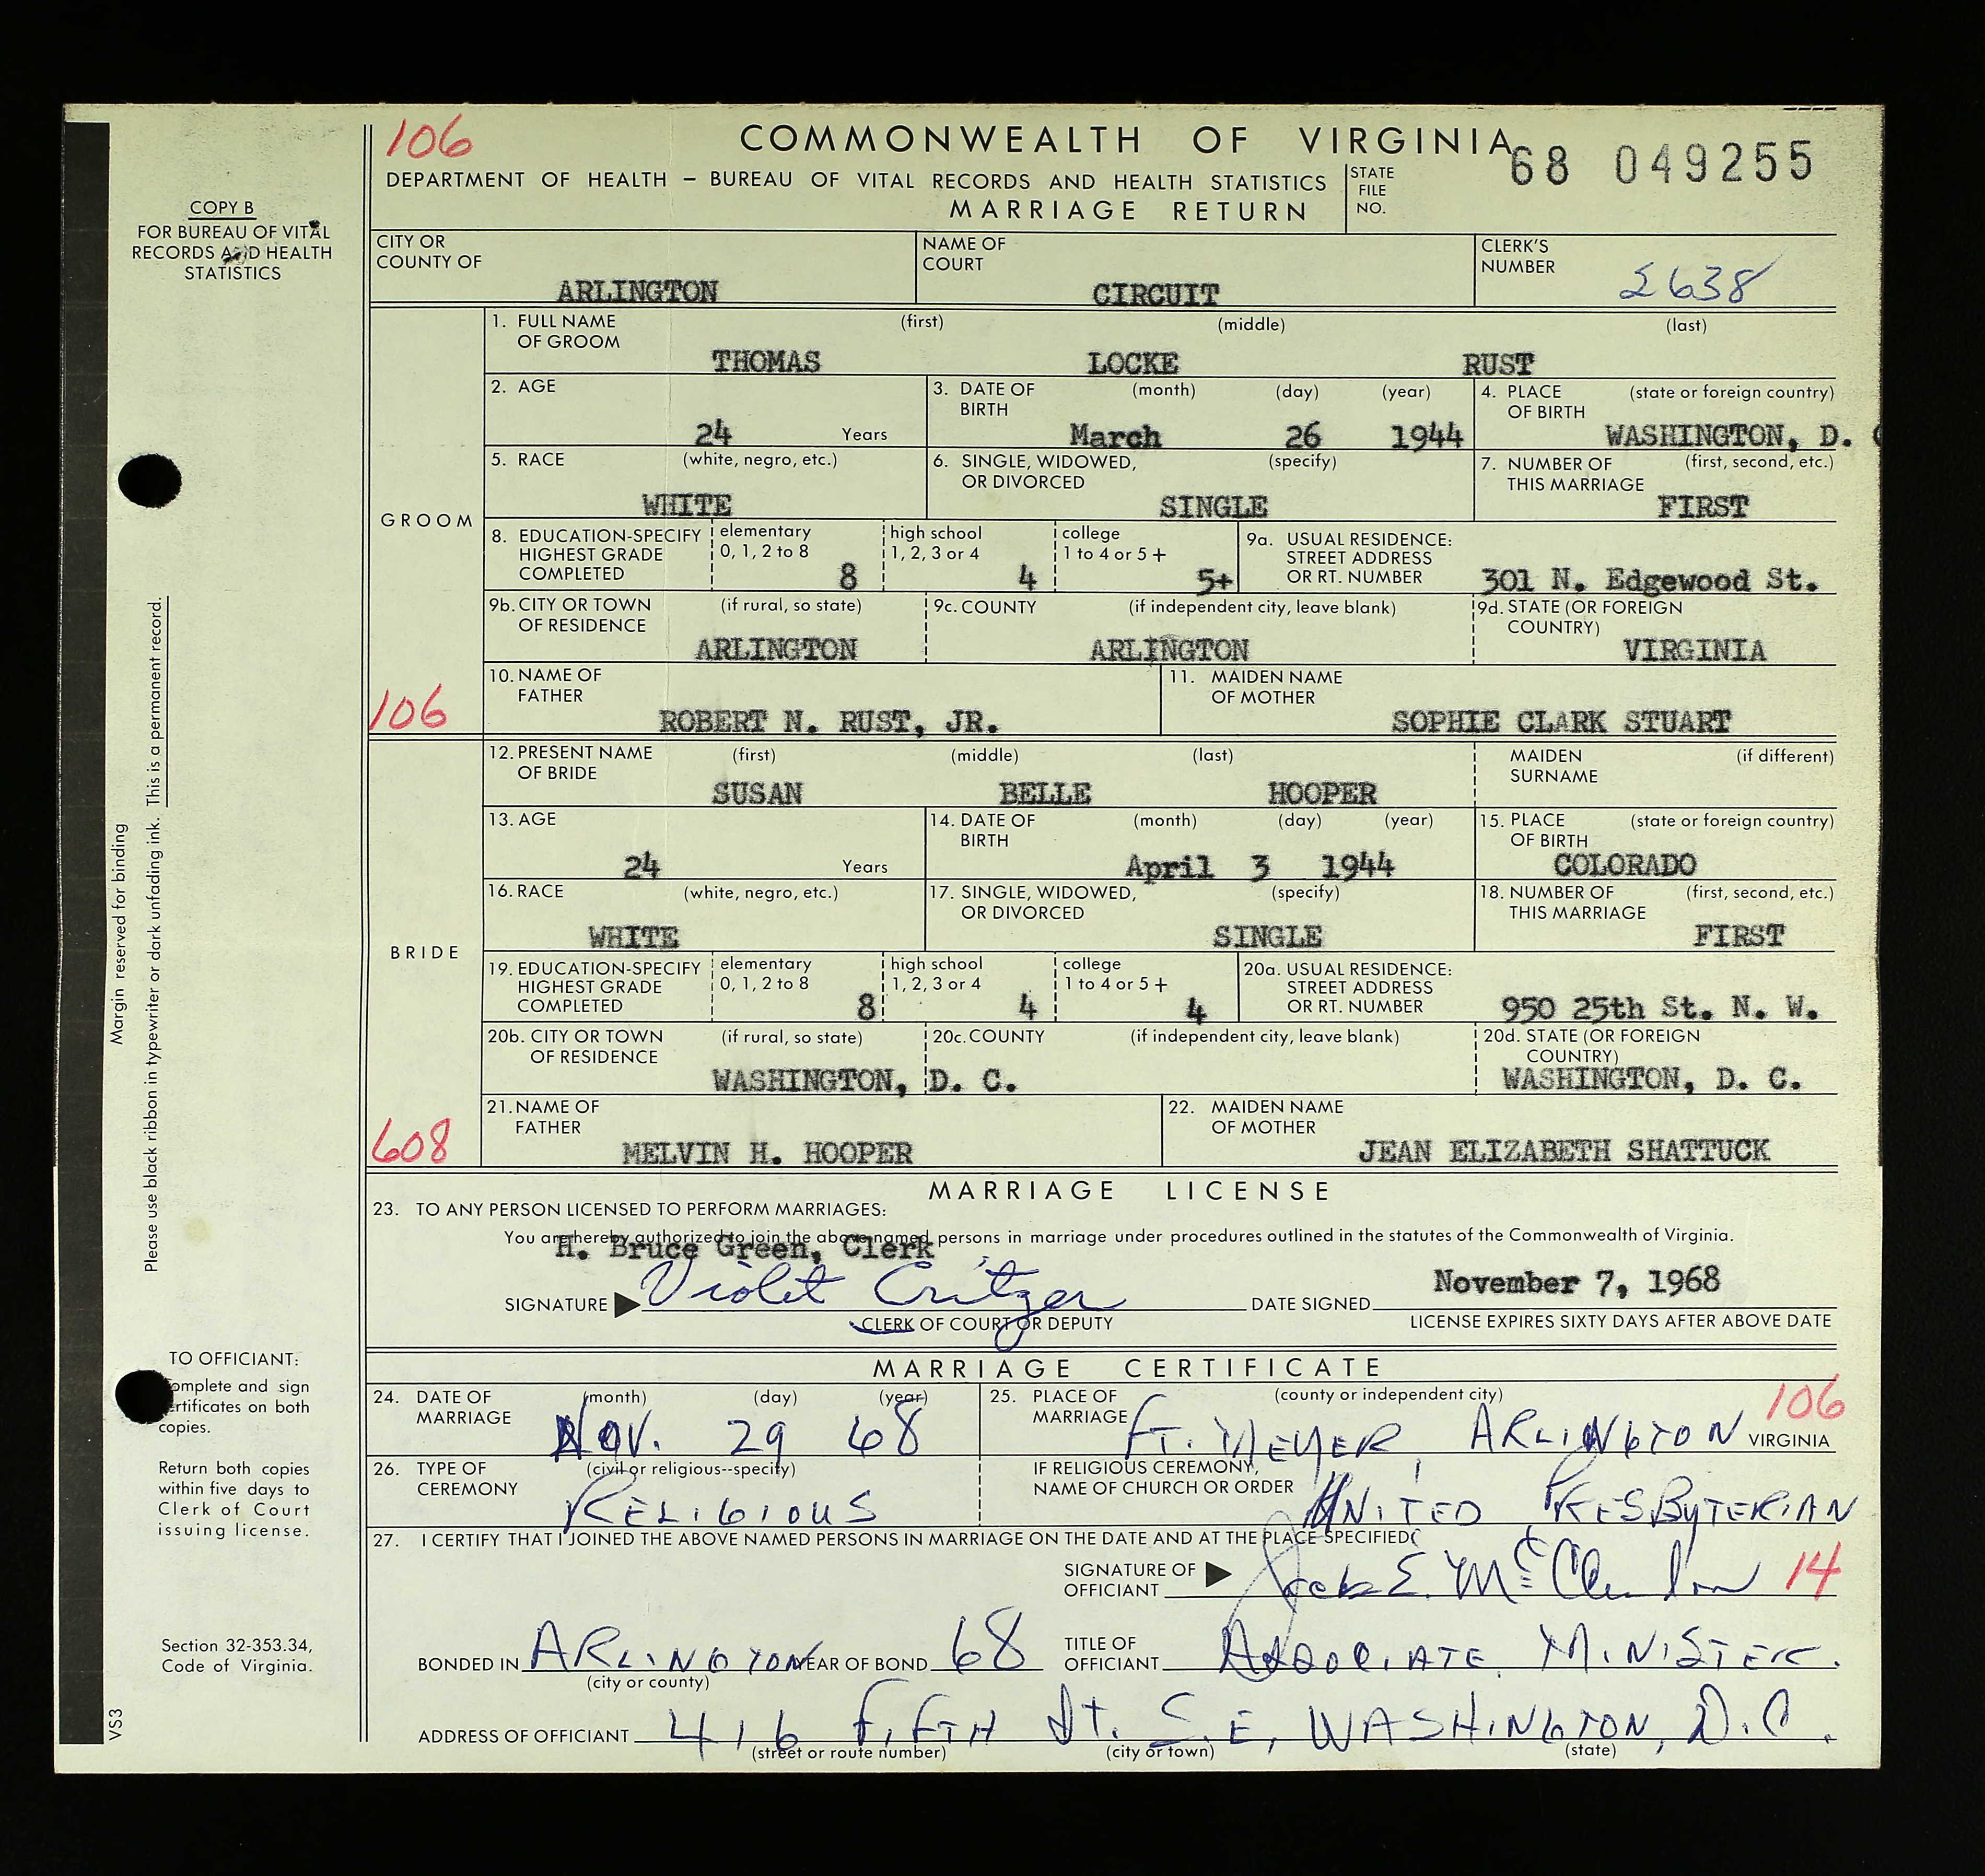 106
COMMONWEALTH OF VIRGINIA
68 049255
DEPARTMENT OF HEALTH — BUREAU OF VITAL RECORDS AND HEALTH STATISTICS
MARRIAGE RETURN
STATE FILE NO.
COPY B
FOR BUREAU OF VITAL
RECORDS AND HEALTH
STATISTICS
CITY OR COUNTY OF ARLINGTON
NAME OF COURT CIRCUIT
CLERK'S NUMBER 2638
GROOM
1. FULL NAME OF GROOM (first) (middle) (last)
THOMAS LOCKE RUST
2. AGE 24 Years
3. DATE OF BIRTH (month) (day) (year) March 26 1944
4. PLACE OF BIRTH (state or foreign country) WASHINGTON, D. C
5. RACE (white, negro, etc.) WHITE
6. SINGLE, WIDOWED, OR DIVORCED (specify) SINGLE
7. NUMBER OF THIS MARRIAGE (first, second, etc.) FIRST
8. EDUCATION-SPECIFY HIGHEST GRADE COMPLETED
elementary 0, 1, 2 to 8 8
high school 1, 2, 3 or 4 4
college 1 to 4 or 5 + 5+
9a. USUAL RESIDENCE: STREET ADDRESS OR RT. NUMBER 301 N. Edgewood St.
9b. CITY OR TOWN OF RESIDENCE (if rural, so state) ARLINGTON
9c. COUNTY (if independent city, leave blank) ARLINGTON
9d. STATE (OR FOREIGN COUNTRY) VIRGINIA
10. NAME OF FATHER ROBERT N. RUST, JR.
11. MAIDEN NAME OF MOTHER SOPHIE CLARK STUART
106
BRIDE
12. PRESENT NAME OF BRIDE (first) (middle) (last)
SUSAN BELLE HOOPER
MAIDEN SURNAME (if different)
13. AGE 24 Years
14. DATE OF BIRTH (month) (day) (year) April 3 1944
15. PLACE OF BIRTH (state or foreign country) COLORADO
16. RACE (white, negro, etc.) WHITE
17. SINGLE, WIDOWED, OR DIVORCED (specify) SINGLE
18. NUMBER OF THIS MARRIAGE (first, second, etc.) FIRST
19. EDUCATION-SPECIFY HIGHEST GRADE COMPLETED
elementary 0, 1, 2 to 8 8
high school 1, 2, 3 or 4 4
college 1 to 4 or 5 + 4
20a. USUAL RESIDENCE: STREET ADDRESS OR RT. NUMBER 950 25th St. N. W.
20b. CITY OR TOWN OF RESIDENCE (if rural, so state)
20c. COUNTY (if independent city, leave blank)
WASHINGTON, D. C.
20d. STATE (OR FOREIGN COUNTRY) WASHINGTON, D. C.
21. NAME OF FATHER MELVIN H. HOOPER
22. MAIDEN NAME OF MOTHER JEAN ELIZABETH SHATTUCK
608
MARRIAGE LICENSE
23. TO ANY PERSON LICENSED TO PERFORM MARRIAGES:
You are hereby authorized to join the above named persons in marriage under procedures outlined in the statutes of the Commonwealth of Virginia.
H. Bruce Green, Clerk
SIGNATURE Violet Critzer DATE SIGNED November 7, 1968
CLERK OF COURT OR DEPUTY
LICENSE EXPIRES SIXTY DAYS AFTER ABOVE DATE
MARRIAGE CERTIFICATE
24. DATE OF MARRIAGE (month) (day) (year) NOV. 29 68
25. PLACE OF MARRIAGE (county or independent city) FT. MEYER, ARLINGTON VIRGINIA
106
26. TYPE OF CEREMONY (civil or religious--specify) RELIGIOUS
IF RELIGIOUS CEREMONY, NAME OF CHURCH OR ORDER UNITED PRESBYTERIAN
27. I CERTIFY THAT I JOINED THE ABOVE NAMED PERSONS IN MARRIAGE ON THE DATE AND AT THE PLACE SPECIFIED
SIGNATURE OF OFFICIANT Jack E.
14
BONDED IN ARLINGTON YEAR OF BOND 68
(city or county)
TITLE OF OFFICIANT ASSOCIATE MINISTER.
ADDRESS OF OFFICIANT 416 FIFTH St. S.E, WASHINGTON, D.C.
(street or route number) (city or town) (state)
Margin reserved for binding
Please use black ribbon in typewriter or dark unfading ink. This is a permanent record.
TO OFFICIANT:
Complete and sign
certificates on both
copies.
Return both copies
within five days to
Clerk of Court
issuing license.
Section 32-353.34,
Code of Virginia.
VS3